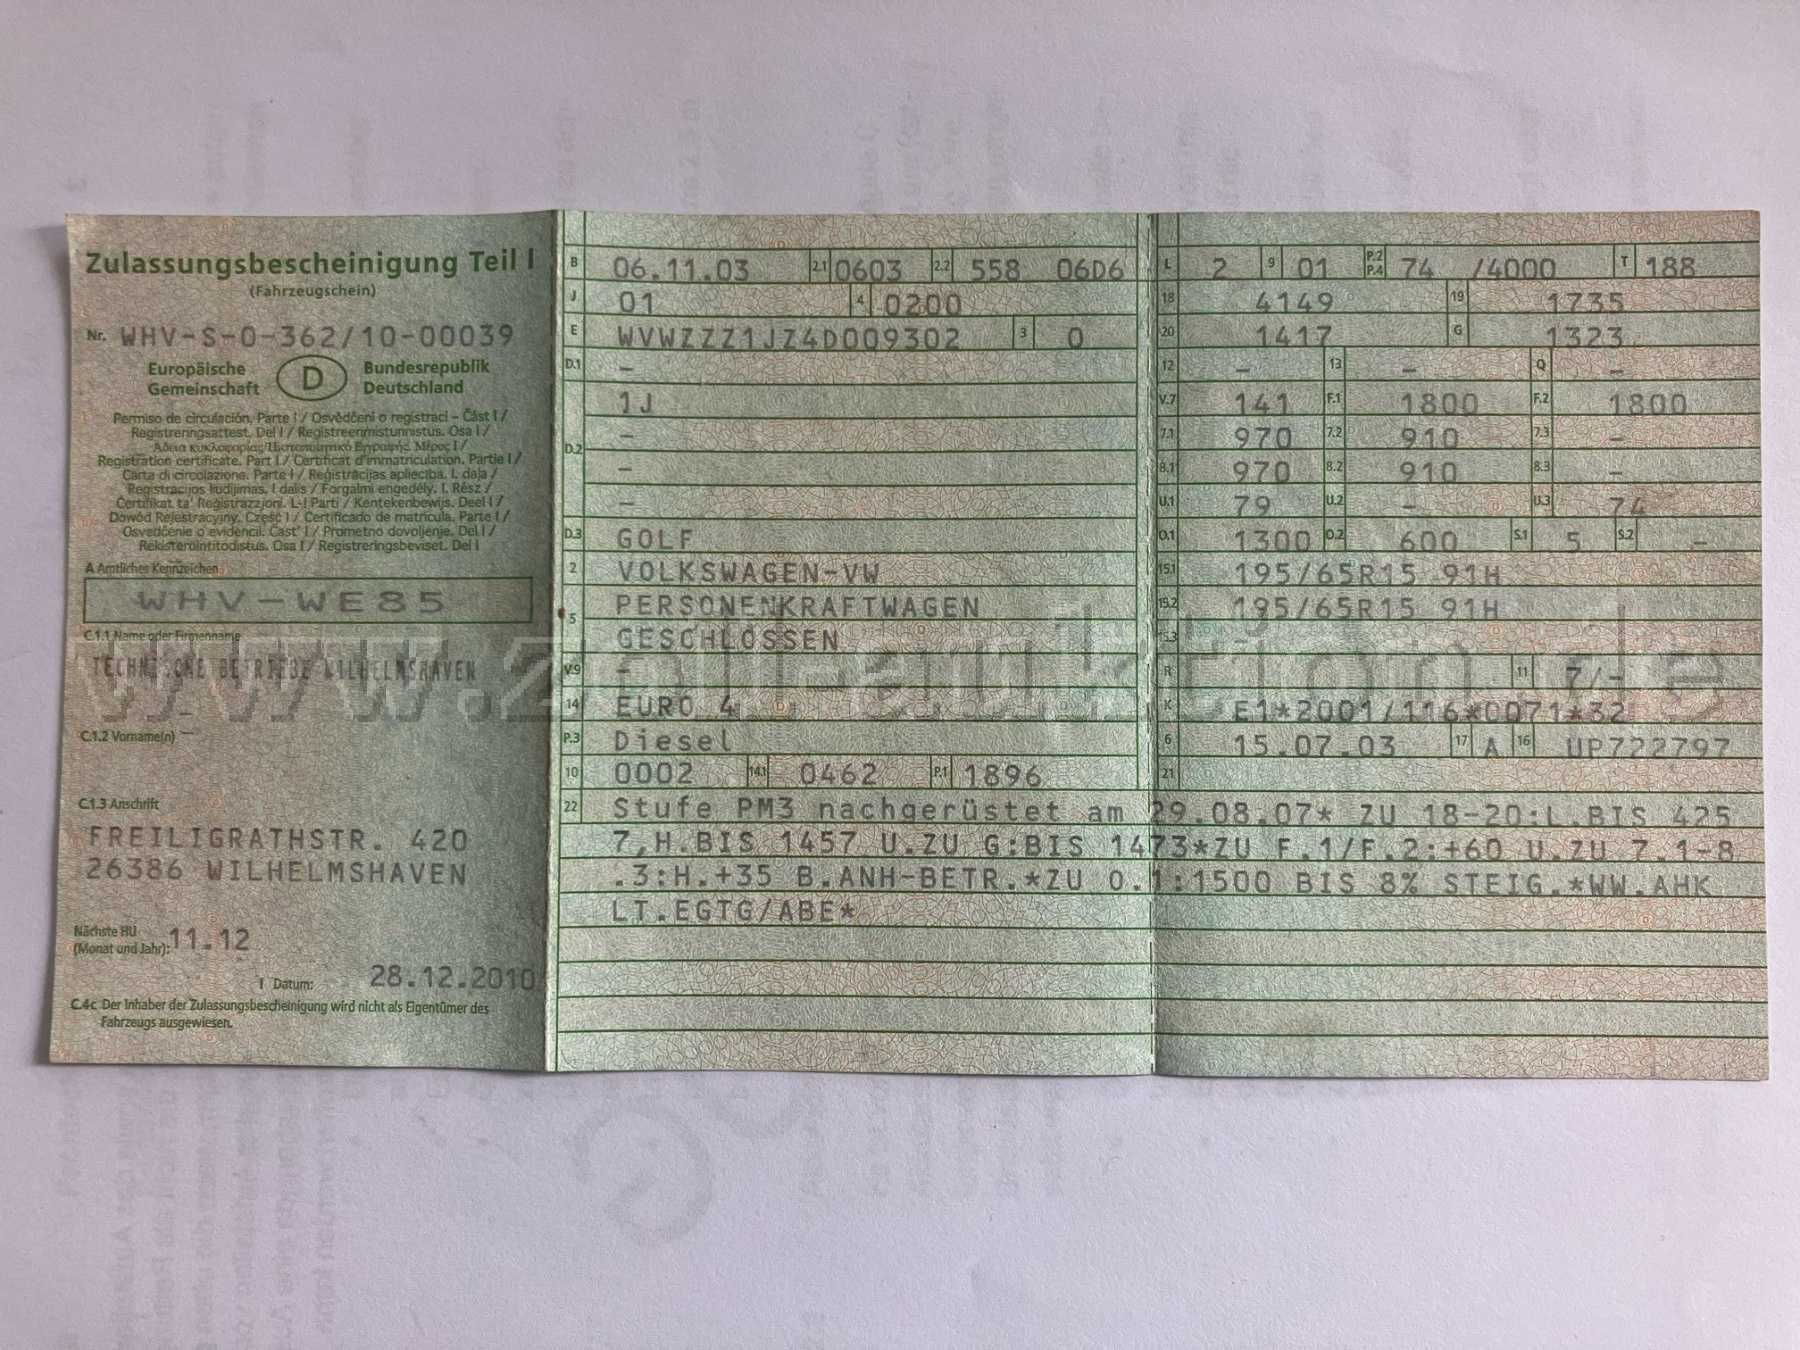 Zulassungsbescheinigung Teil I
(Fahrzeugschein)
Nr. WHV-S-0-362/10-00039
Europäische Gemeinschaft D Bundesrepublik Deutschland
Permiso de circulación, Parte I / Osvědčení o registraci – Část I /
Registreringsattest, Del I / Registreerimistunnistus. Osa I /
Άδεια κυκλοφορίας/Πιστοποιητικό Εγγραφής. Μέρος I /
Registration certificate. Part I / Certificat d'immatriculation. Partie I /
Carta di circolazione. Parte I / Reģistrācijas apliecība. I. daļa /
Registracijos liudijimas. I dalis / Forgalmi engedély. I. Rész /
Ċertifikat ta' Reġistrazzjoni. L-I Parti / Kentekenbewijs. Deel I /
Dowód Rejestracyjny. Część I / Certificado de matrícula. Parte I /
Osvedčenie o evidencii. Časť I / Prometno dovoljenje. Del I /
Rekisteröintitodistus. Osa I / Registreringsbeviset. Del I
A Amtliches Kennzeichen
WHV-WE85
C.1.1 Name oder Firmenname
TECHNISCHE BETRIEBE WILHELMSHAVEN
–
C.1.2 Vorname(n) –
C.1.3 Anschrift
FREILIGRATHSTR. 420
26386 WILHELMSHAVEN
Nächste HU
(Monat und Jahr): 11.12
I Datum: 28.12.2010
C.4c Der Inhaber der Zulassungsbescheinigung wird nicht als Eigentümer des
Fahrzeugs ausgewiesen.
B 06.11.03 2.1 0603 2.2 558 06D6
J 01 4 0200
E WVWZZZ1JZ4D009302 3 0
D.1 –
1J
–
D.2
–
–
D.3 GOLF
2 VOLKSWAGEN-VW
5 PERSONENKRAFTWAGEN
GESCHLOSSEN
V.9 –
14 EURO 4
P.3 Diesel
10 0002 14.1 0462 P.1 1896
L 2 9 01 P.2 P.4 74 /4000 T 188
18 4149 19 1735
20 1417 G 1323
12 – 13 – Q –
V.7 141 F.1 1800 F.2 1800
7.1 970 7.2 910 7.3 –
8.1 970 8.2 910 8.3 –
U.1 79 U.2 – U.3 74
O.1 1300 O.2 600 S.1 5 S.2 –
15.1 195/65R15 91H
15.2 195/65R15 91H
15.3 –
R 11 7/–
K E1*2001/116*0071*32
6 15.07.03 17 A 16 UP722797
21
22 Stufe PM3 nachgerüstet am 29.08.07* ZU 18-20:L.BIS 425
7,H.BIS 1457 U.ZU G:BIS 1473*ZU F.1/F.2:+60 U.ZU 7.1-8
.3:H.+35 B.ANH-BETR.*ZU O.1:1500 BIS 8% STEIG.*WW.AHK
LT.EGTG/ABE*
www.zoll-auktion.de